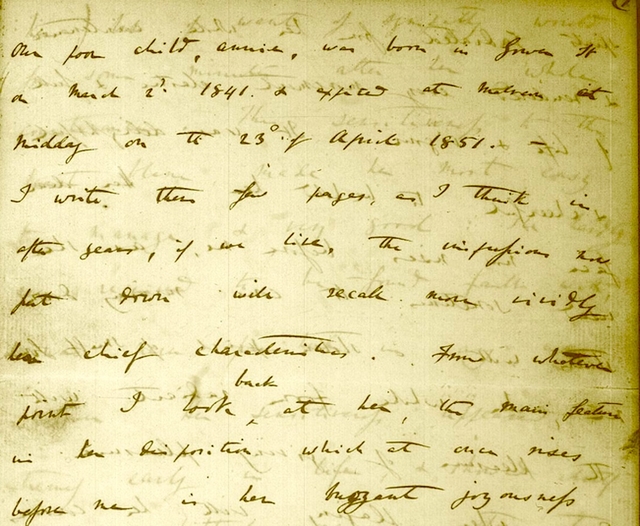 Our poor child, Annie, was born in Gower St
on March 2d. 1841. & expired at Malvern at
Midday on the 23d. of April 1851. —
I write these few pages, as I think in
after years, if we live, the impressions now
put down will recall more vividly
her chief characteristics. From whatever
point I look back at her, the main feature
in her disposition which at once rises
before me is her buoyant joyousness